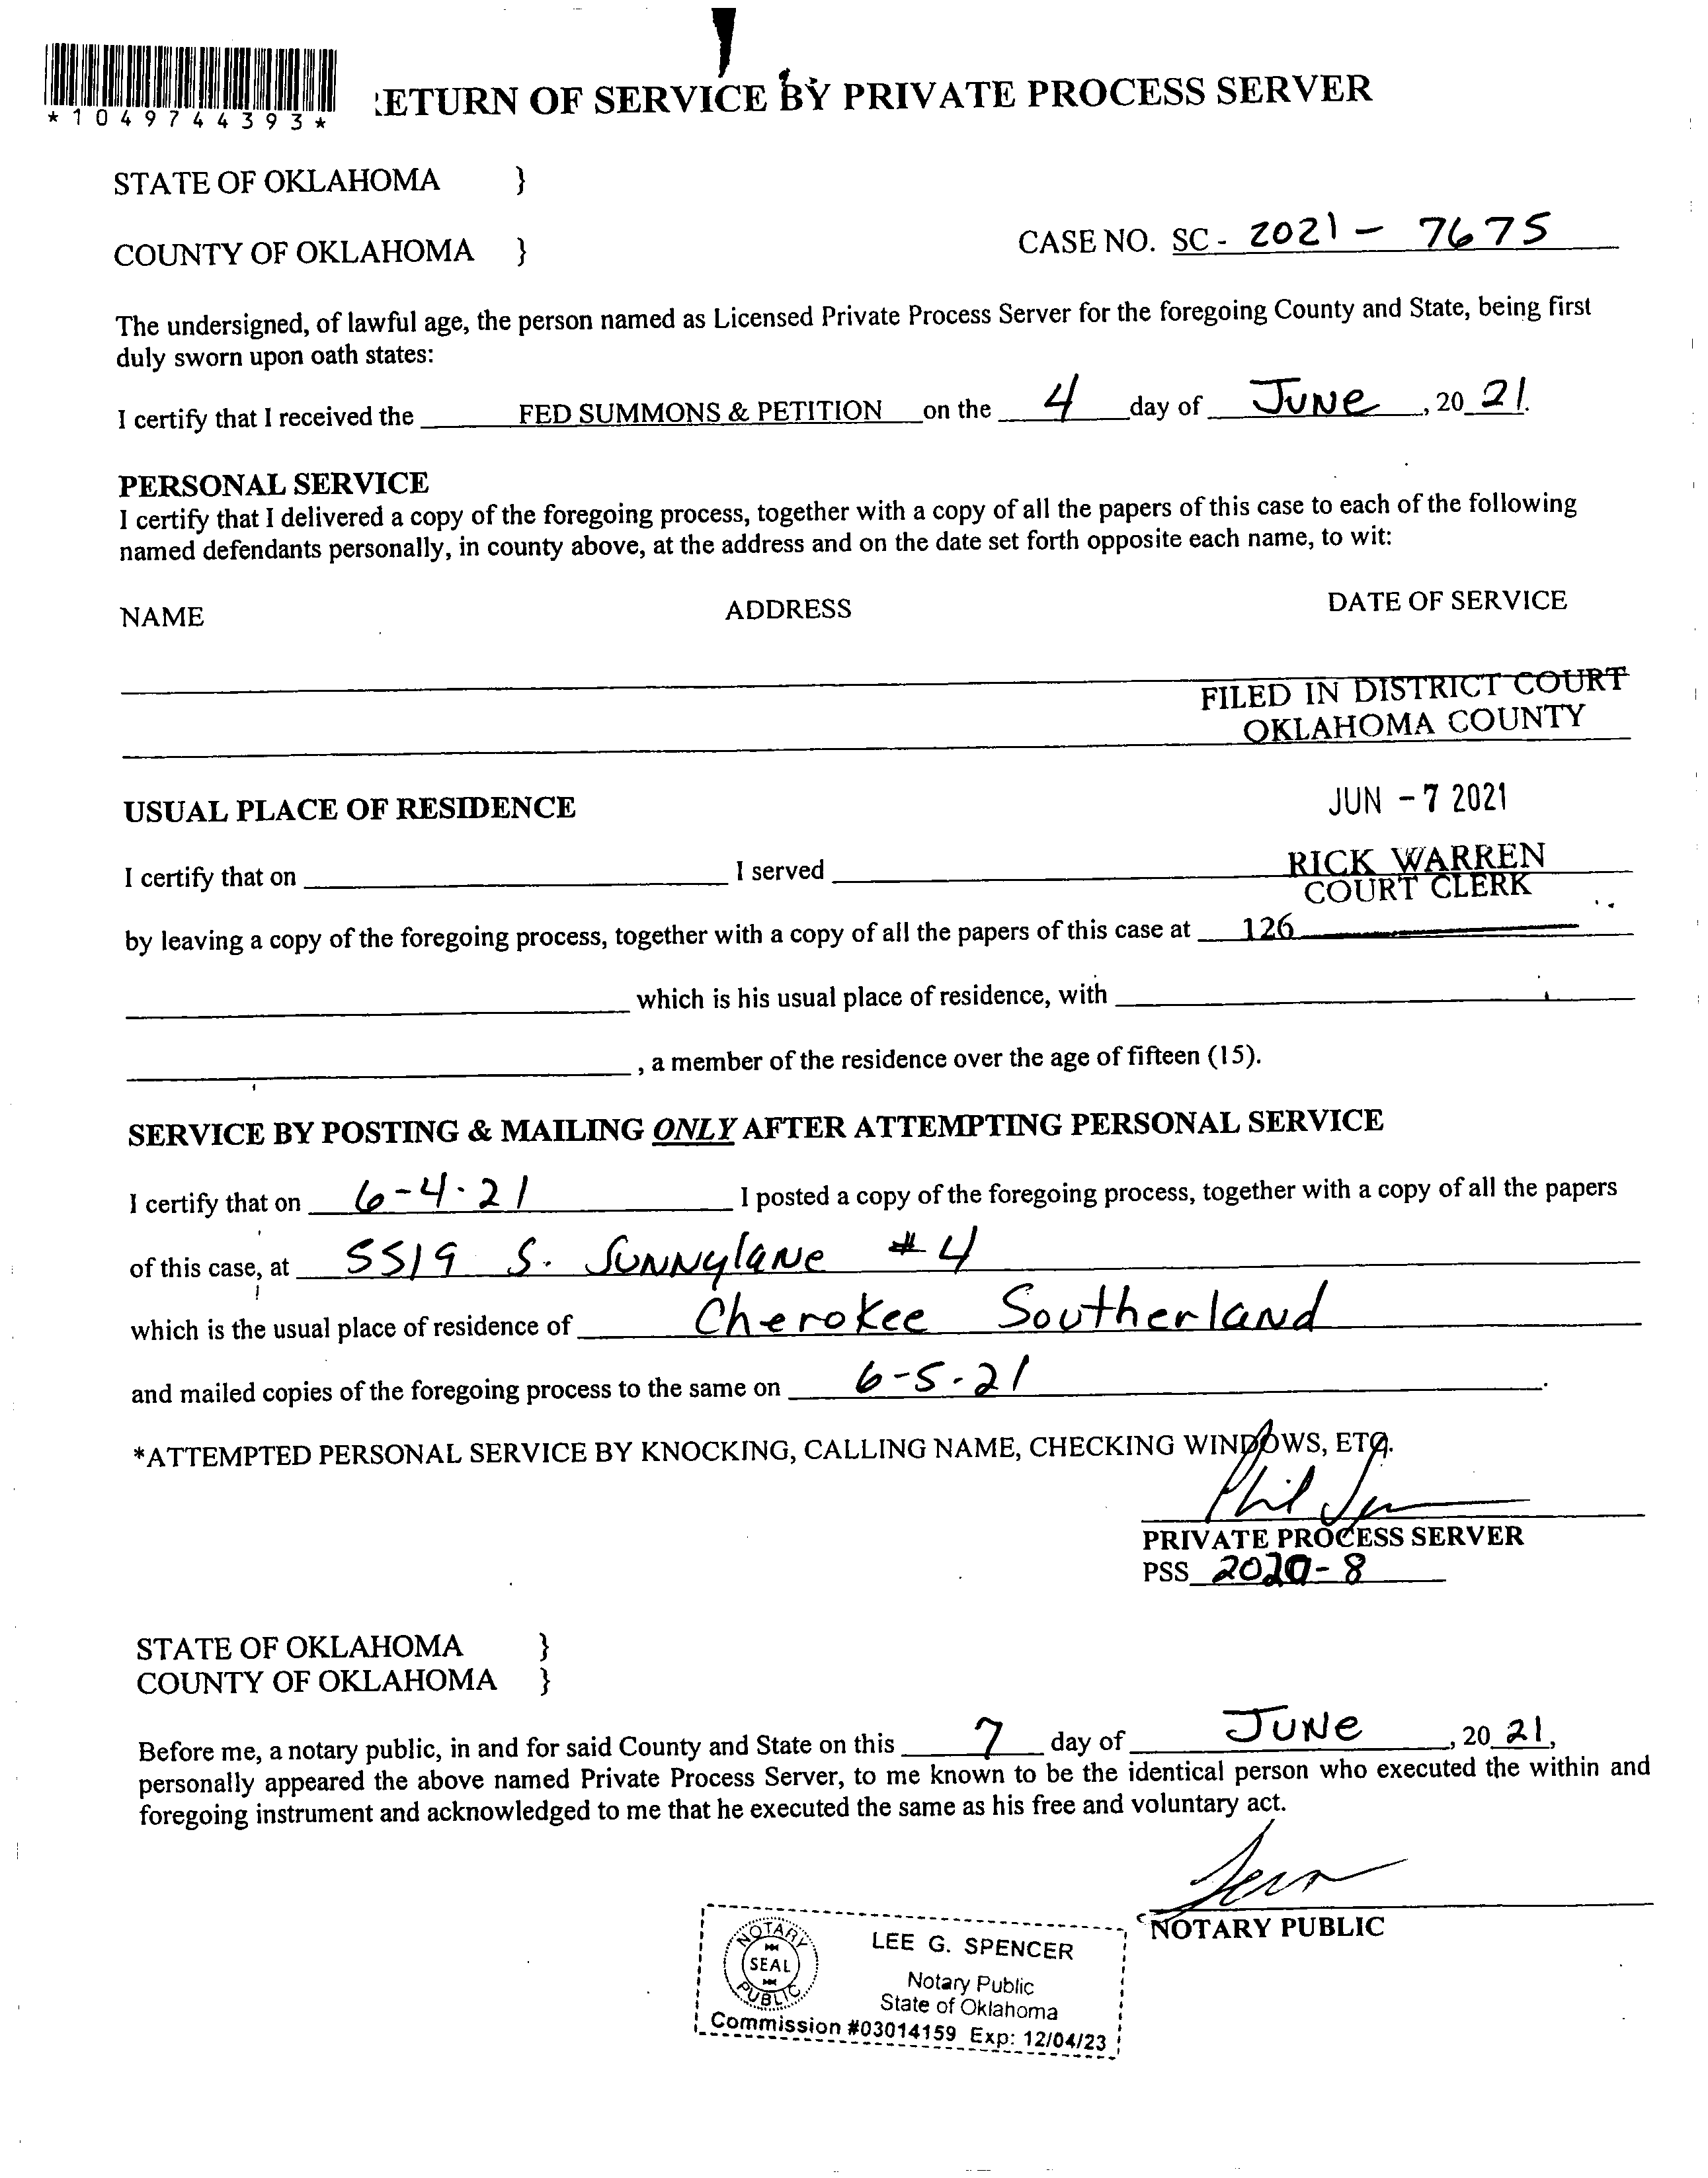 *1049744393*
ETURN OF SERVICE BY PRIVATE PROCESS SERVER
STATE OF OKLAHOMA }
COUNTY OF OKLAHOMA }
CASE NO. SC- 2021 - 7675
The undersigned, of lawful age, the person named as Licensed Private Process Server for the foregoing County and State, being first
duly sworn upon oath states:
I certify that I received the FED SUMMONS & PETITION on the 4 day of JUNe, 20 21.
PERSONAL SERVICE
I certify that I delivered a copy of the foregoing process, together with a copy of all the papers of this case to each of the following
named defendants personally, in county above, at the address and on the date set forth opposite each name, to wit:
NAME ADDRESS DATE OF SERVICE
FILED IN DISTRICT COURT
OKLAHOMA COUNTY
JUN - 7 2021
USUAL PLACE OF RESIDENCE
RICK WARREN
COURT CLERK
I certify that on I served
by leaving a copy of the foregoing process, together with a copy of all the papers of this case at 126
which is his usual place of residence, with
, a member of the residence over the age of fifteen (15).
SERVICE BY POSTING & MAILING ONLY AFTER ATTEMPTING PERSONAL SERVICE
I certify that on 6-4-21 I posted a copy of the foregoing process, together with a copy of all the papers
of this case, at 5519 S. SUNNylaNe #4
which is the usual place of residence of Cherokee SoutherlaNd
and mailed copies of the foregoing process to the same on 6-5-21.
*ATTEMPTED PERSONAL SERVICE BY KNOCKING, CALLING NAME, CHECKING WINDOWS, ETC.
Phil
PRIVATE PROCESS SERVER
PSS 2020-8
STATE OF OKLAHOMA }
COUNTY OF OKLAHOMA }
Before me, a notary public, in and for said County and State on this 7 day of JUNe, 20 21,
personally appeared the above named Private Process Server, to me known to be the identical person who executed the within and
foregoing instrument and acknowledged to me that he executed the same as his free and voluntary act.
NOTARY PUBLIC
NOTARY
SEAL
PUBLIC
LEE G. SPENCER
Notary Public
State of Oklahoma
Commission #03014159 Exp: 12/04/23